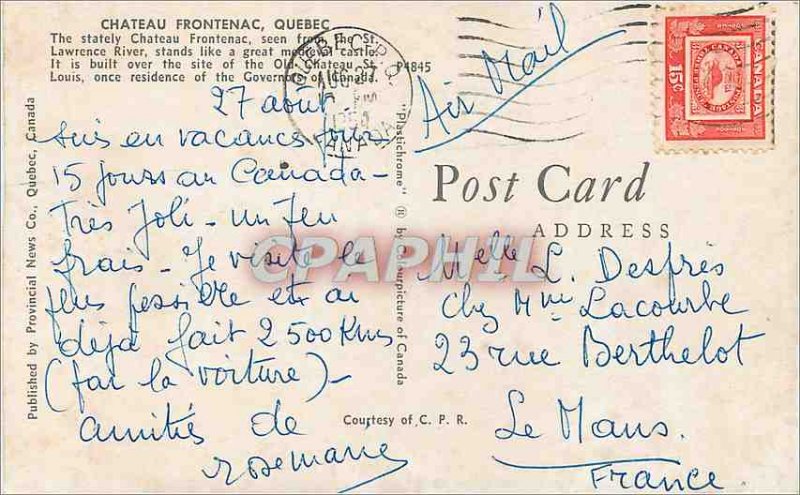 CHATEAU FRONTENAC, QUEBEC
The stately Chateau Frontenac, seen from the St.
Lawrence River, stands like a great medieval castle.
It is built over the site of the Old Chateau St.
Louis, once residence of the Governors of Canada.
P4845
QUEBEC P.Q.
CANADA
Air Mail
15¢
CANADA
27 août
suis en vacances pour
15 jours au Canada -
Très Joli - un peu
frais - Je visite le
plus possible et ai
déjà fait 2500 Kms
(par la voiture) -
amitiés de
rosemarie
Published by Provincial News Co., Quebec, Canada
"Plastichrome" ® by Colourpicture of Canada
Post Card
ADDRESS
Melle L. Desprès
chez Mme Lacourbe
23 rue Berthelot
Le Mans.
France
Courtesy of C. P. R.
CPAPHIL